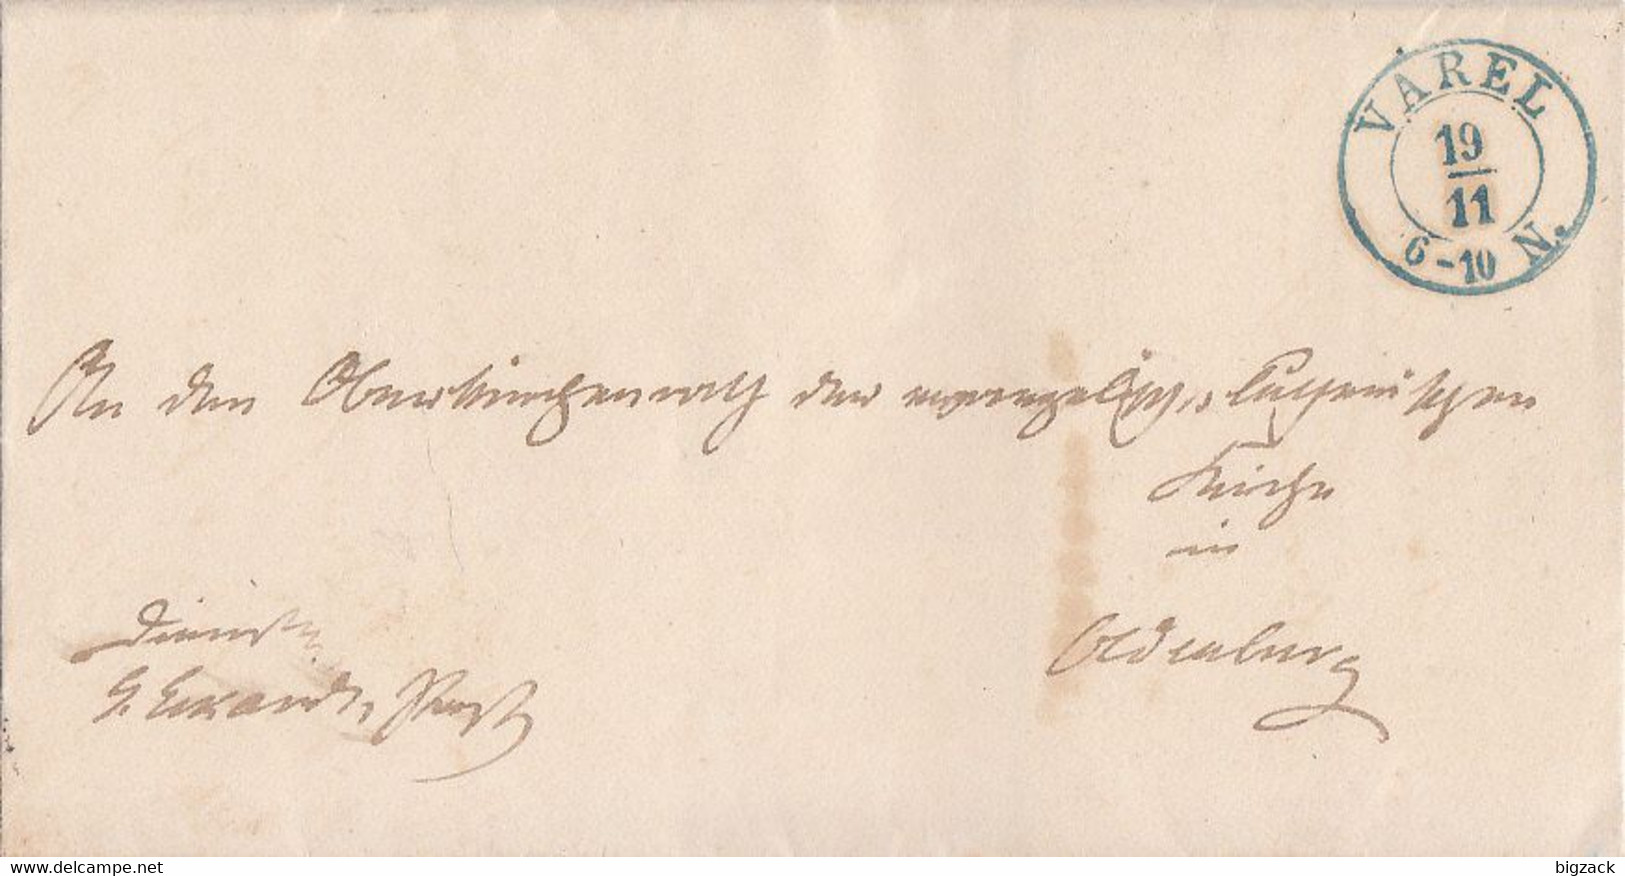 VAREL
19
11
6-10 N.
An den Oberkirchenrath der evangelisch-lutherischen
Kirche
in
Oldenburg
Dienst
delcampe.net
bigzack